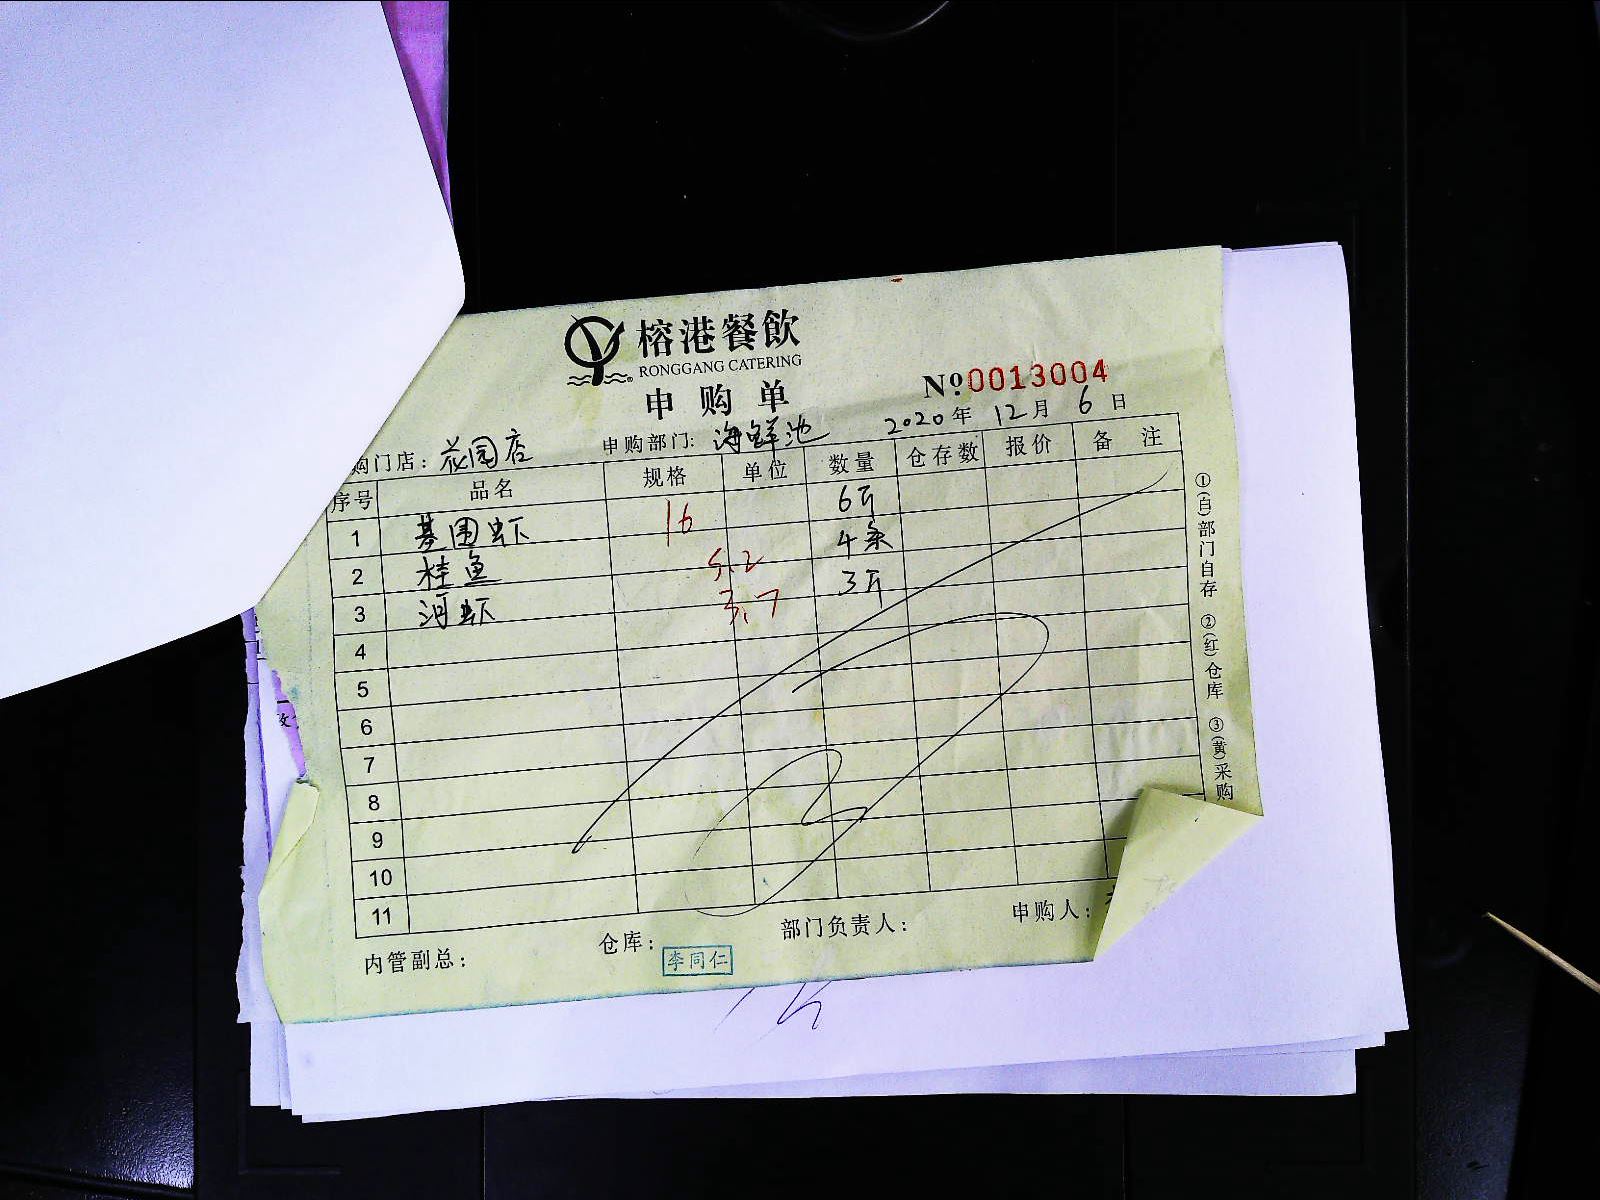 榕港餐飲
RONGGANG CATERING
申购单
№0013004
2020年12月6日
购门店：花园店 申购部门：海鲜池
序号 品名 规格 单位 数量 仓存数 报价 备注
1 基围虾 16 6斤
2 桂鱼 5.2 4条
3 河虾 3.7 3斤
4
5
6
7
8
9
10
11
内管副总： 仓库： 李同仁 部门负责人： 申购人：
①(白)部门自存 ②(红)仓库 ③(黄)采购